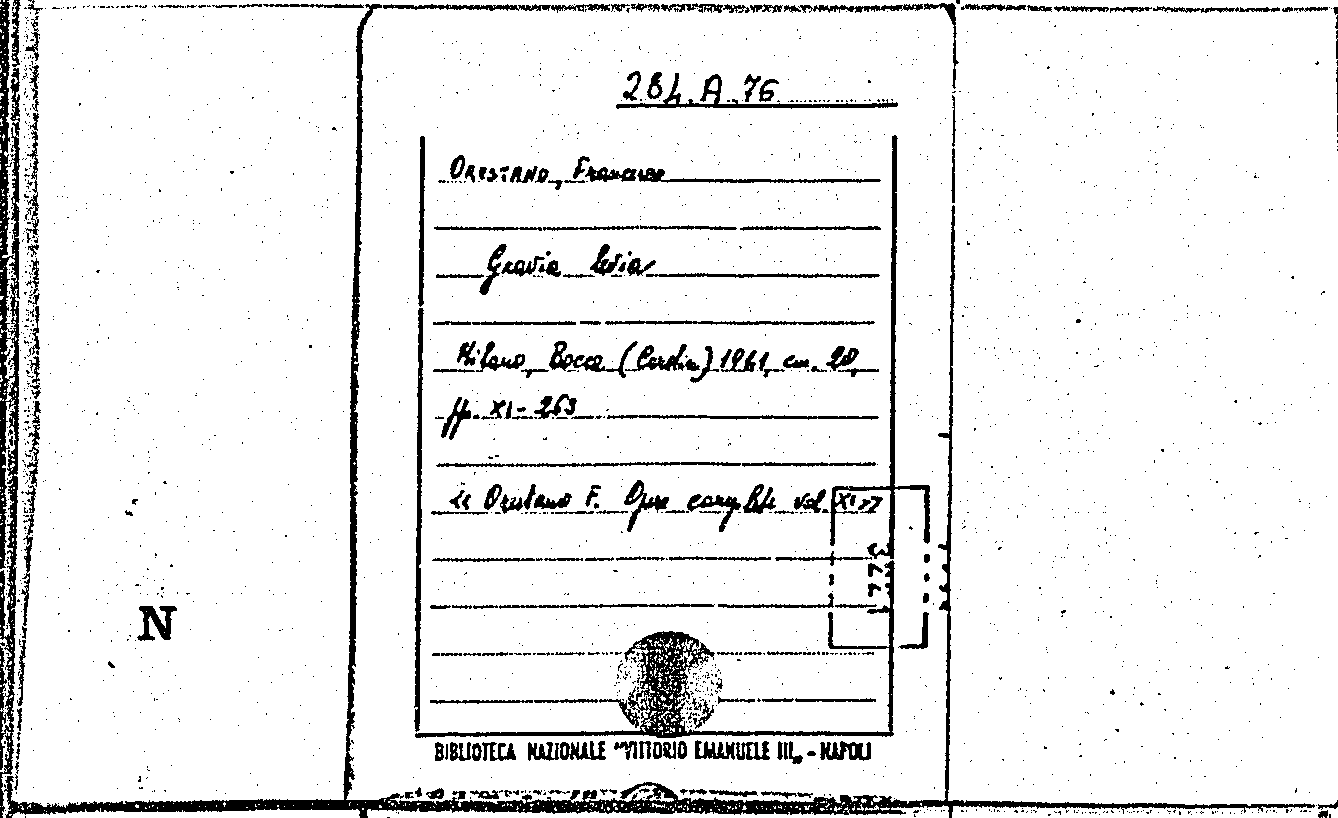 284.A.76
Orestano, Francesco
Gravia levia
Milano, Bocca 1961, cm. 20,
pp. XI-263
<< Orestano F. Opere complete vol. XI >>
N
BIBLIOTECA NAZIONALE "VITTORIO EMANUELE III„ - NAPOLI